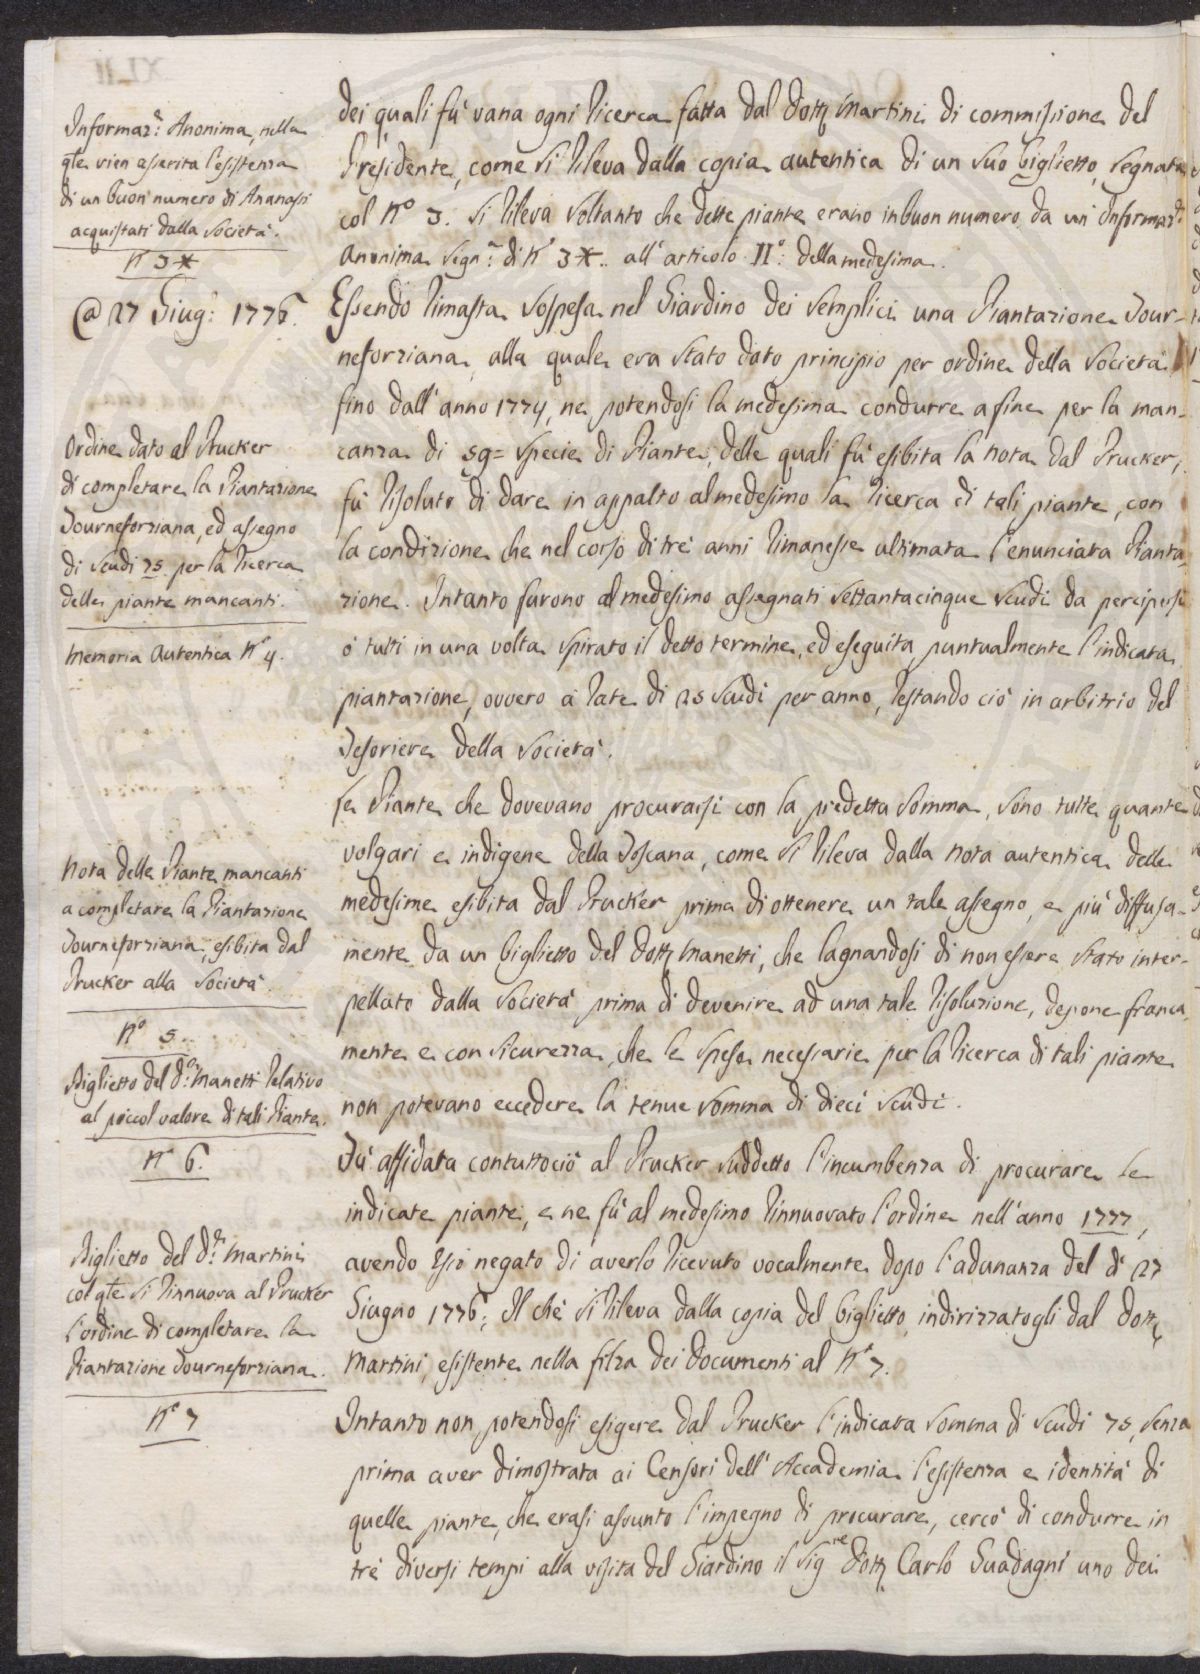 Informaz.ᵉ Anonima, nella
qle vien asserita l'esistenza
di un buon numero di Ananassi
acquistati dalla Società.
N° 3*
@ 27 Giug: 1776.
Ordine dato al Prucker
di completare la Piantazione
Tourneforziana, ed assegno
di Scudi 75 per la Ricerca
delle piante mancanti.
Memoria Autentica N° 4.
Nota delle Piante mancanti
a completare la Piantazione
Tourneforziana, esibita dal
Prucker alla Società.
N° 5.
Biglietto del D.r Manetti Relativo
al piccol valore di tali Piante.
N° 6.
Biglietto del D.r Martini
col qle si Rinnuova al Prucker
l'ordine di completare la
Piantazione Tourneforziana.
N° 7
dei quali fù vana ogni Ricerca fatta dal Dott Martini di commissione del
Presidente, come si Rileva dalla copia autentica di un suo biglietto, segnata
col N° 3. Si Rileva soltanto che dette piante erano in buon numero da un' Informaz.ᵉ
Anonima segn.ª di N° 3*. all'articolo II°: della medesima.
Essendo Rimasta sospesa nel Giardino dei Semplici una Piantazione Tour-
neforziana, alla quale era stato dato principio per ordine della Società
fino dall'anno 1774, ne potendosi la medesima condurre a fine per la man-
canza di 59= specie di Piante, delle quali fù esibita la Nota dal Prucker,
fù Risoluto di dare in appalto al medesimo la Ricerca di tali piante, con
la condizione che nel corso di trè anni Rimanesse ultimata l'enunciata Pianta-
zione. Intanto furono al medesimo assegnati Settantacinque scudi da percipersi
ò tutti in una volta spirato il detto termine, ed eseguita puntualmente l'indicata
piantazione, ovvero à Rate di 25 Scudi per anno, Restando ciò in arbitrio del
Tesoriere della Società.
Le Piante che dovevano procurarsi con la predetta Somma, sono tutte quante
volgari e indigene della Toscana, come si Rileva dalla Nota autentica delle
medesime esibita dal Prucker prima di ottenere un tale assegno, e più diffusa-
mente da un biglietto del Dott Manetti, che lagnandosi di non essere stato inter-
pellato dalla Società prima di devenire ad una tale Risoluzione, depone franca
mente e con sicurezza, che le spese necessarie per la Ricerca di tali piante
non potevano eccedere la tenue somma di dieci scudi.
Fù affidata contuttociò al Prucker suddetto l'incumbenza di procurare le
indicate piante, e ne fù al medesimo Rinnuovato l'ordine nell'anno 1777,
avendo Esso negato di averlo Ricevuto vocalmente dopo l'adunanza del dì 27
Giugno 1776; Il chè si Rileva dalla copia del biglietto, indirizzatogli dal Dott
Martini, esistente nella filza dei Documenti al N° 7.
Intanto non potendosi esigere dal Prucker l'indicata Somma di Scudi 75, senza
prima aver dimostrata ai Censori dell'Accademia l'esistenza e identità di
quelle piante, che erasi assunto l'impegno di procurare, cercò di condurre in
trè diversi tempi alla visita del Giardino il Sigre Dott Carlo Guadagni uno dei